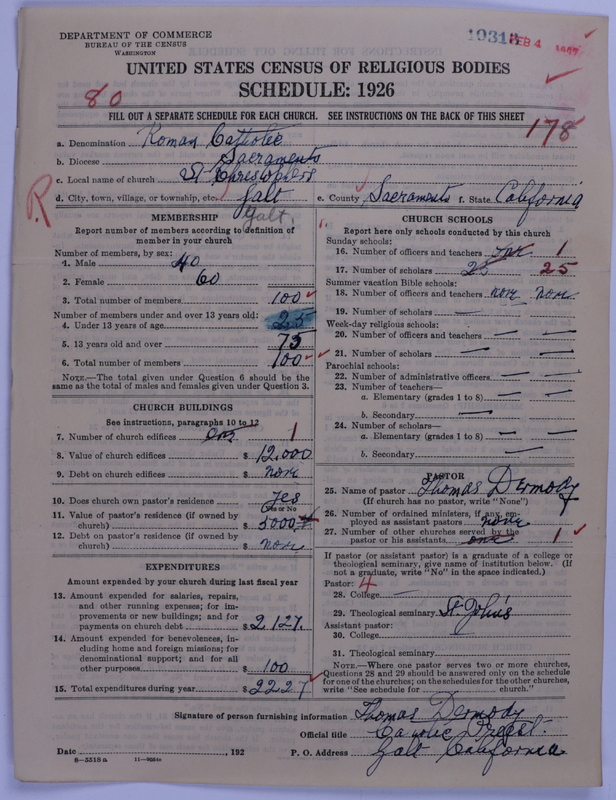 DEPARTMENT OF COMMERCE
BUREAU OF THE CENSUS
WASHINGTON
19313 FEB 4 1927
UNITED STATES CENSUS OF RELIGIOUS BODIES
SCHEDULE: 1926
80
FILL OUT A SEPARATE SCHEDULE FOR EACH CHURCH. SEE INSTRUCTIONS ON THE BACK OF THIS SHEET
178
a. Denomination Roman Catholic
b. Diocese Sacramento
c. Local name of church St Christophers
d. City, town, village, or township, etc. Galt e. County Sacramento f. State California
R
Galt.
MEMBERSHIP
Report number of members according to definition of
member in your church
Number of members, by sex:
1. Male 40
2. Female 60
3. Total number of members 100
Number of members under and over 13 years old:
4. Under 13 years of age 25
5. 13 years old and over 75
6. Total number of members 100
NOTE.—The total given under Question 6 should be the
same as the total of males and females given under Question 3.
CHURCH BUILDINGS
See instructions, paragraphs 10 to 12
7. Number of church edifices One 1
8. Value of church edifices $ 12,000
9. Debt on church edifices $ none
10. Does church own pastor's residence Yes
Yes or No
11. Value of pastor's residence (if owned by
church) $ 5000
12. Debt on pastor's residence (if owned by
church) $ none
EXPENDITURES
Amount expended by your church during last fiscal year
13. Amount expended for salaries, repairs,
and other running expenses; for im-
provements or new buildings; and for
payments on church debt $ 2127.
14. Amount expended for benevolences, in-
cluding home and foreign missions; for
denominational support; and for all
other purposes $ 100
15. Total expenditures during year $ 2227
CHURCH SCHOOLS
Report here only schools conducted by this church
Sunday schools:
16. Number of officers and teachers one 1
17. Number of scholars 25 25
Summer vacation Bible schools:
18. Number of officers and teachers none none
19. Number of scholars —
Week-day religious schools:
20. Number of officers and teachers — —
21. Number of scholars — —
Parochial schools:
22. Number of administrative officers — —
23. Number of teachers—
a. Elementary (grades 1 to 8) — —
b. Secondary —
24. Number of scholars—
a. Elementary (grades 1 to 8) — —
b. Secondary —
PASTOR
25. Name of pastor Thomas Dermody
(If church has no pastor, write "None")
26. Number of ordained ministers, if any, em-
ployed as assistant pastors none
27. Number of other churches served by the
pastor or his assistants one 1
If pastor (or assistant pastor) is a graduate of a college or
theological seminary, give name of institution below. (If
not a graduate, write "No" in the space indicated.)
Pastor: 4
28. College —
29. Theological seminary St. John's
Assistant pastor:
30. College
31. Theological seminary
NOTE.—Where one pastor serves two or more churches,
Questions 28 and 29 should be answered only on the schedule
for one of the churches; on the schedules for the other churches,
write "See schedule for church."
Signature of person furnishing information Thomas Dermody
Official title Catholic Priest.
Date , 192 P. O. Address Galt California
8-5518a